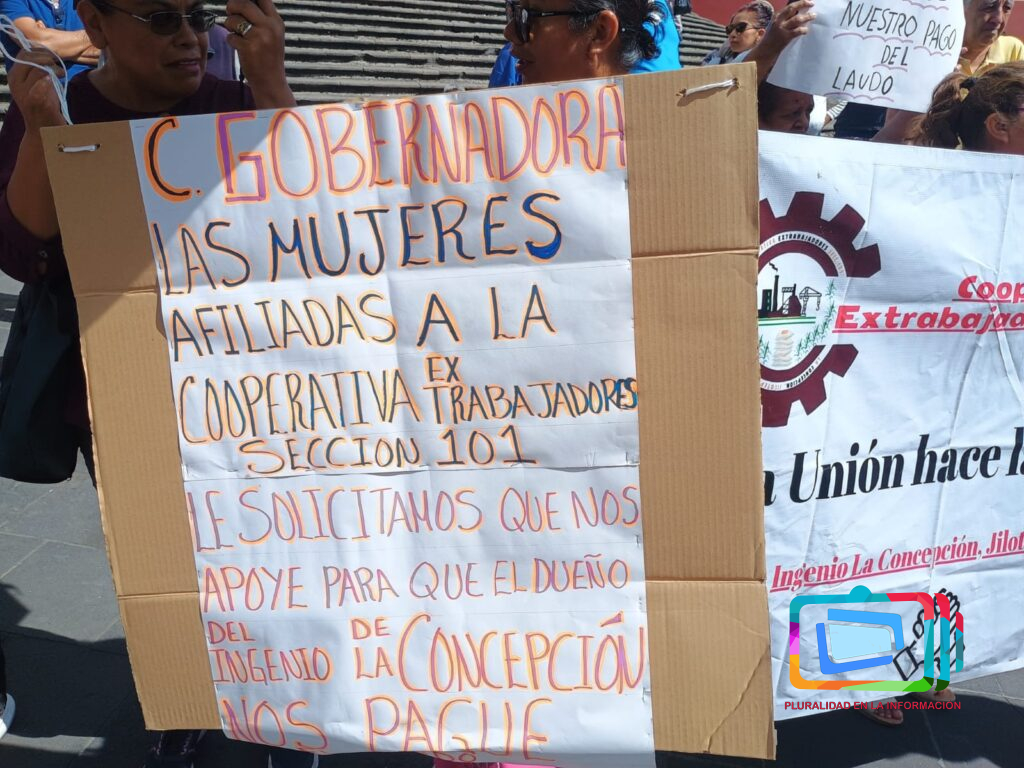 NUESTRO PAGO
DEL
LAUDO
C. GOBERNADORA
LAS MUJERES
AFILIADAS A LA
COOPERATIVA EX TRABAJADORES
SECCION 101
LE SOLICITAMOS QUE NOS
APOYE PARA QUE EL DUEÑO
DEL INGENIO DE LA CONCEPCIÓN
NOS PAGUE
Coop
Extrabajad
Unión hace l
Ingenio La Concepción, Jilot
PLURALIDAD EN LA INFORMACIÓN